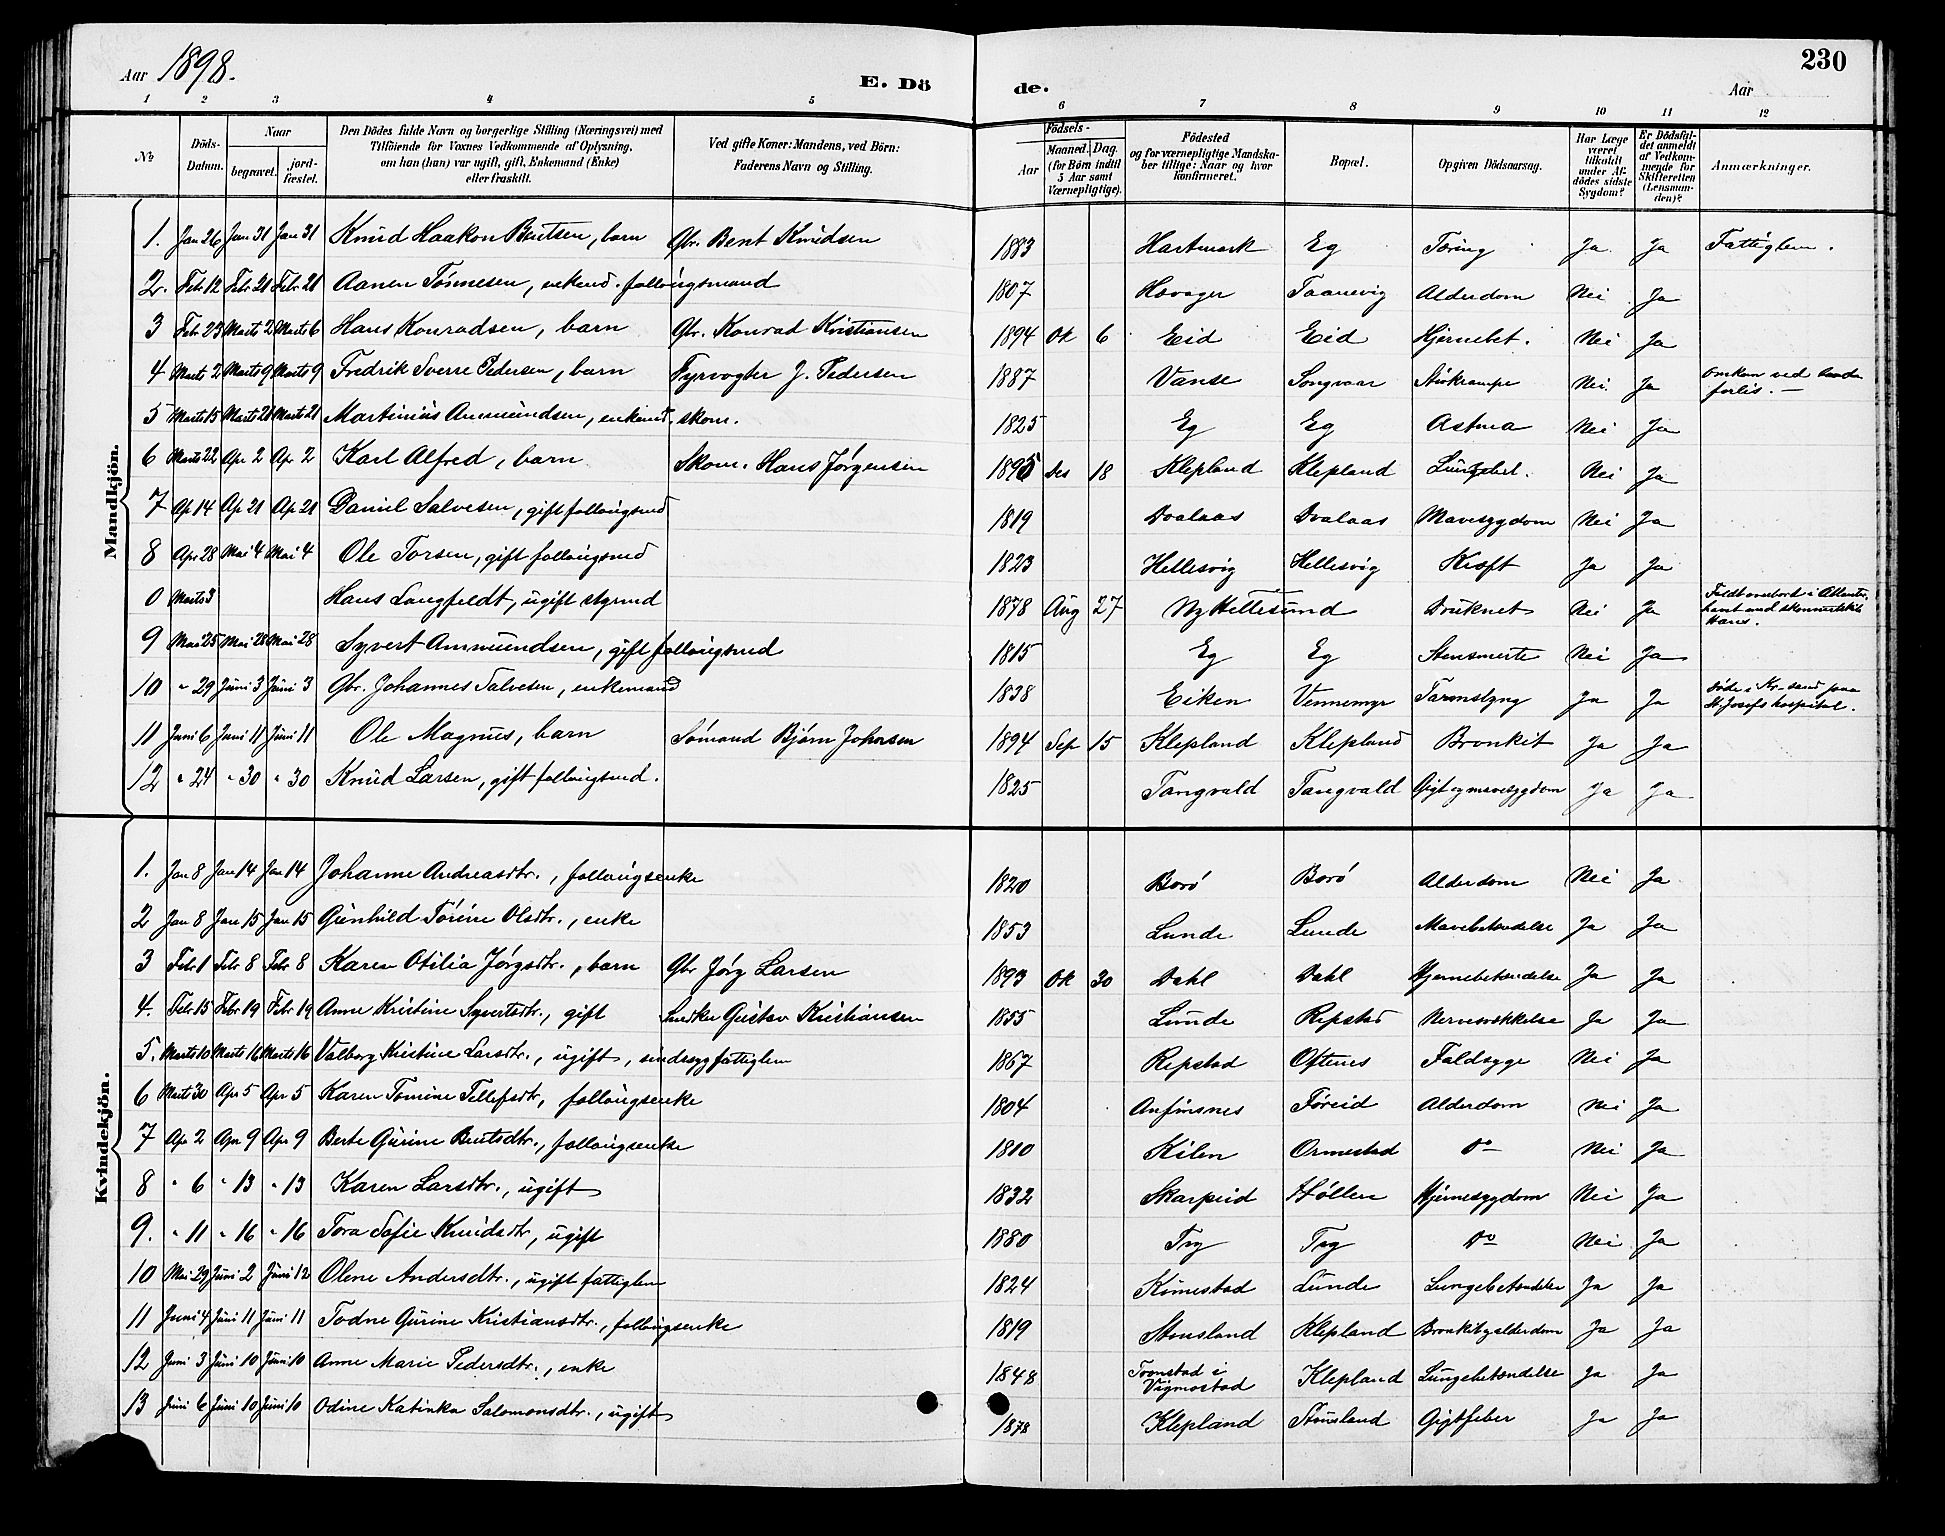 Aar 1898.
E. Dö
de.
Aar
230
1 2 3 4 5 6 7 8 9 10 11 12
№
Döds-Datum.
Naar
begravet.
jord-fæstet.
Den Dödes fulde Navn og borgerlige Stilling (Næringsvei) med
Tilföiende for Voxnes Vedkommende af Oplysning,
om han (hun) var ugift, gift, Enkemand (Enke)
eller fraskilt.
Ved gifte Koner: Mandens, ved Börn:
Faderens Navn og Stilling.
Födsels-
Aar
Maaned. Dag.
(for Börn indtil
5 Aar samt
Værnepligtige).
Födested
og for værnepligtige Mandska-
ber tillige: Naar og hvor
konfirmeret.
Bopæl.
Opgiven Dödsaarsag.
Har Læge
været
tilkaldt
under Af-
dödes sidste
Sygdom?
Er Dödsfal-
det anmeldt
af Vedkom-
mende for
Skifteretten
(Lensman-
den)?
Anmærkninger.
Mandkjön.
1. Jan 26 Jan 31 Jan 31 Knud Haakon Bentsen, barn Gbr. Bent Knudsen 1883 Hartmark Eg Tæring Ja Ja Fattiglem.
2. Febr 12 Febr 21 Febr 21 Aanen Tønnesen, enkemd. follaugsmand 1807 Haavager Taanevig Alderdom Nei Ja
3 Febr 23 Marts 2 Marts 6 Hans Konradsen, barn Gbr. Konrad Kristiansen 1894 Ok 6 Eid Eid Hjernebet. Nei Ja
4 Marts 2 Marts 9 Marts 9 Fredrik Sverre Pedersen, barn Fyrvogter J. Pedersen 1887 Vanse Songvaar Nei Ja omkom ved
forlis. —
5 Marts 15 Marts 21 Marts 21 Martinius Ammundsen, enkemd. skom. 1825 Eg Eg Astma Nei Ja
6 Marts 22 Apr 2 Apr 2 Karl Alfred, barn Skom. Hans Jørgensen 1895 Des 18 Klepland Klepland Lungebet. Nei Ja
7 Ap 14 Ap 21 Ap 21 Daniel Salvesen, gift follaugsmd 1819 Dvalaas Dvalaas Mavesygdom Nei Ja
8 Apr 28 Mai 4 Mai 4 Ole Torsen, gift follaugsmd 1823 Hellesvig Hellesvig Kræft Ja Ja
0 Marts 3 Hans Langfeldt, ugift styrmd 1878 Aug 27 Ny Hellesund Druknet Nei Ja Faldt overbord i Atlanter-
havet med skonnertskib
Hans.
9 Mai 25 Mai 28 Mai 28 Syvert Ammundsen, gift follaugsmd 1815 Eg Eg Stensmerte Nei Ja
10 " 29 Juni 3 Juni 3 Gbr. Johannes Salvesen, enkemand 1838 Eiken Vennemyr Tarmslyng Ja Ja Døde i Kr-sand paa
St Josefs hospital.
11 Juni 6 Juni 11 Juni 11 Ole Magnus, barn Sømand Bjørn Johnsen 1894 Sep 15 Klepland Klepland Bronkit Ja Ja
12 " 24 " 30 " 30 Knud Larsen, gift follaugsmd. 1825 Tangvald Tangvald Gigt og mavesygdom Ja Ja
Kvindekjön.
1. Jan 8 Jan 14 Jan 14 Johanne Andreasdtr., follaugsenke 1820 Borø Borø Alderdom Nei Ja
2 Jan 8 Jan 15 Jan 15 Gunhild Tørine Olsdtr., enke 1853 Lunde Lunde Mavebetændelse Ja Ja
3 Febr 1 Febr 8 Febr 8 Karen Otilia Jørgsdtr., barn Gbr Jørg Larsen 1893 Ok 30 Dahl Dahl Hjernebetændelse Ja Ja
4. Febr 15 Febr 19 Febr 19 Anne Kristine Syvertsdtr., gift Snedker Gustav Kristiansen 1855 Lunde Repstad Nervesvækkelse Ja Ja
5. Marts 10 Marts 16 Marts 16 Valborg Kristine Larsdtr., ugift, sindssyg fattiglem 1867 Repstad Oftenes Faldsyge Nei Ja
6 Marts 30 Apr 5 Apr 5 Karen Tomine Tellefsdtr, follaugsenke 1804 Anfinsnes Føreid Alderdom Nei Ja
7 Ap 2 Apr 9 Apr 9 Berte Gurine Bentsdtr., follaugsenke 1810 Kilen Ormestad Do Nei Ja
8 " 6 " 13 " 13 Karen Larsdtr., ugift 1832 Skarpeid Høllen Hjernesygdom Nei Ja
9. " 11 " 16 " 16 Tora Sofie Knudsdtr, ugift 1880 Try Try Do Nei Ja
10 Mai 29 Juni 2 Juni 12 Olene Andersdtr., ugift fattiglem 1824 Kumestad Lunde Lungebetændelse Ja Ja
11 Juni 4 Juni 11 Juni 11 Todne Gurine Kristiansdtr., follaugsenke 1819 Stousland Klepland Bronkit og alderdom Ja Ja
12 Juni 3 Juni 10 Juni 10 Anne Marie Pedersdtr., enke 1848 Tronstad i
Vigmostad Klepland Lungebetændelse Ja Ja
13 Juni 6 Juni 10 Juni 10 Odine Katinka Salomonsdtr., ugift 1878 Klepland Stousland Gigtfeber Ja Ja